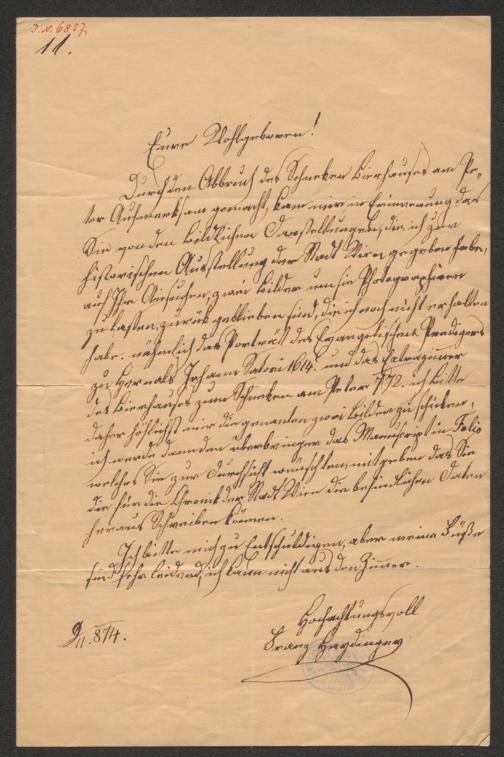 I.N. 6857
11.
Euer Wohlgeboren!
Durch den Abbruch des Schneken Bierhauses am Pe-
ter Aufmerksam gemacht, kam mir in Erinnerung das
Sie von den bildlichen Darstellungen, die ich zur
historischen Ausstellung der Stadt Wien gegeben habe,
auf Ihr Ansuchen, zwei Bilder um sie Photographieren
zu lassen, zurük geblieben sind, die ich noch nicht erhalten
habe. nähmlich das Porträt des Evangelischen Predigers
zu Hernals Johann 1614. und das Extrazimmer
des Bierhauses zum Schneken am Peter 772. ich bitte
daher höflichst mir die genanten zwei Bilder zu schiken,
ich werde dann den Überbringer das Manuscript in Folio
welches Sie zur Durchsicht wünschten, mitgeben das Sie
die für die Chronik der Stadt Wien die befindlichen Daten
heraus Schreiben können.
Ich bitte mich zu Entschuldigen, aber meine Füße
sind sehr leidend, ich kann nicht aus den Zimer.
Hochachtungsvoll
Franz Haydinger
9/II. 874.